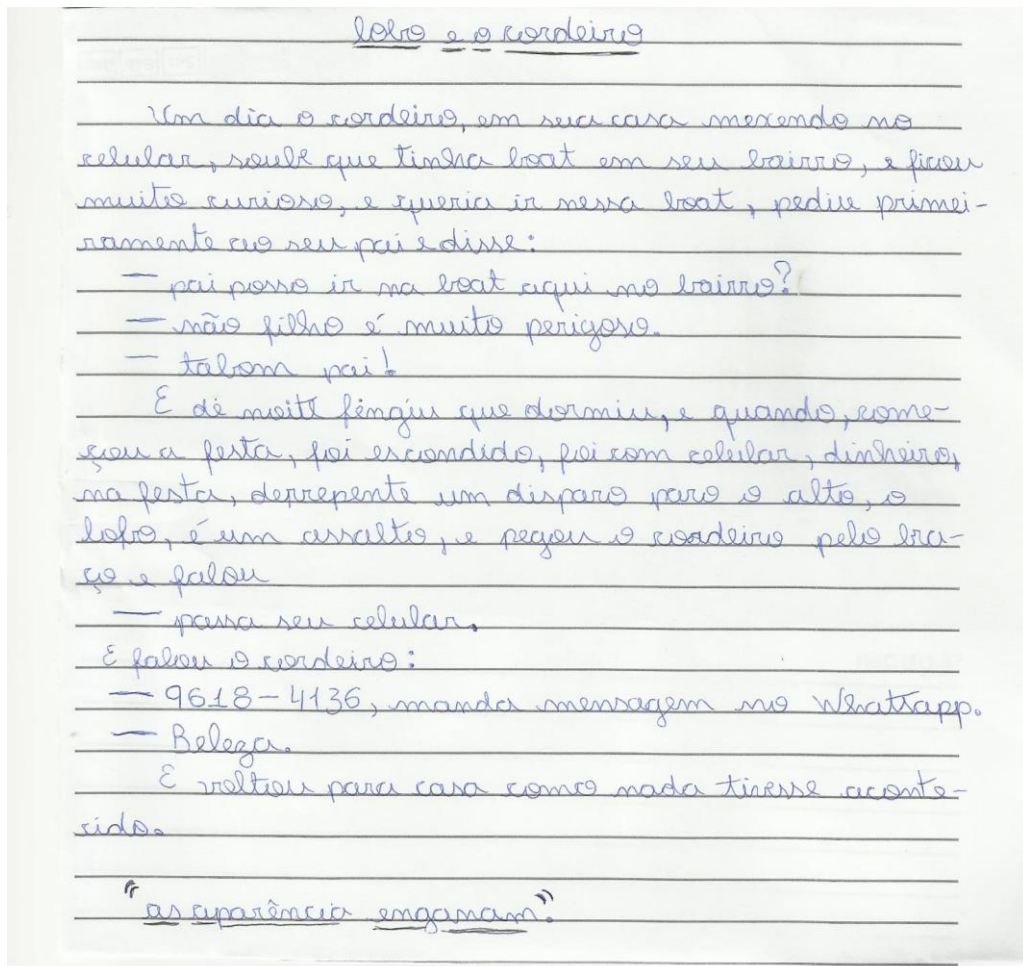 lobo e o cordeiro
Um dia o cordeiro, em sua casa mexendo no
celular, soube que tinha boat em seu bairro, e ficou
muito curioso, e queria ir nessa boat, pediu primei-
ramente ao seu pai e disse:
— pai posso ir na boat aqui no bairro?
— não filho é muito perigoso.
— tabom pai!
E de noite fingiu que dormiu, e quando, come-
çou a festa, foi escondido, foi com celular, dinheiro,
na festa, derrepente um disparo paro o alto, o
lobo, é um assalto, e pegou o cordeiro pelo bra-
ço e falou
— passa seu celular.
E falou o cordeiro:
— 9618-4136, manda mensagem no Whattsapp.
— Beleza.
E voltou para casa como nada tivesse aconte-
cido.
"as aparência enganam".